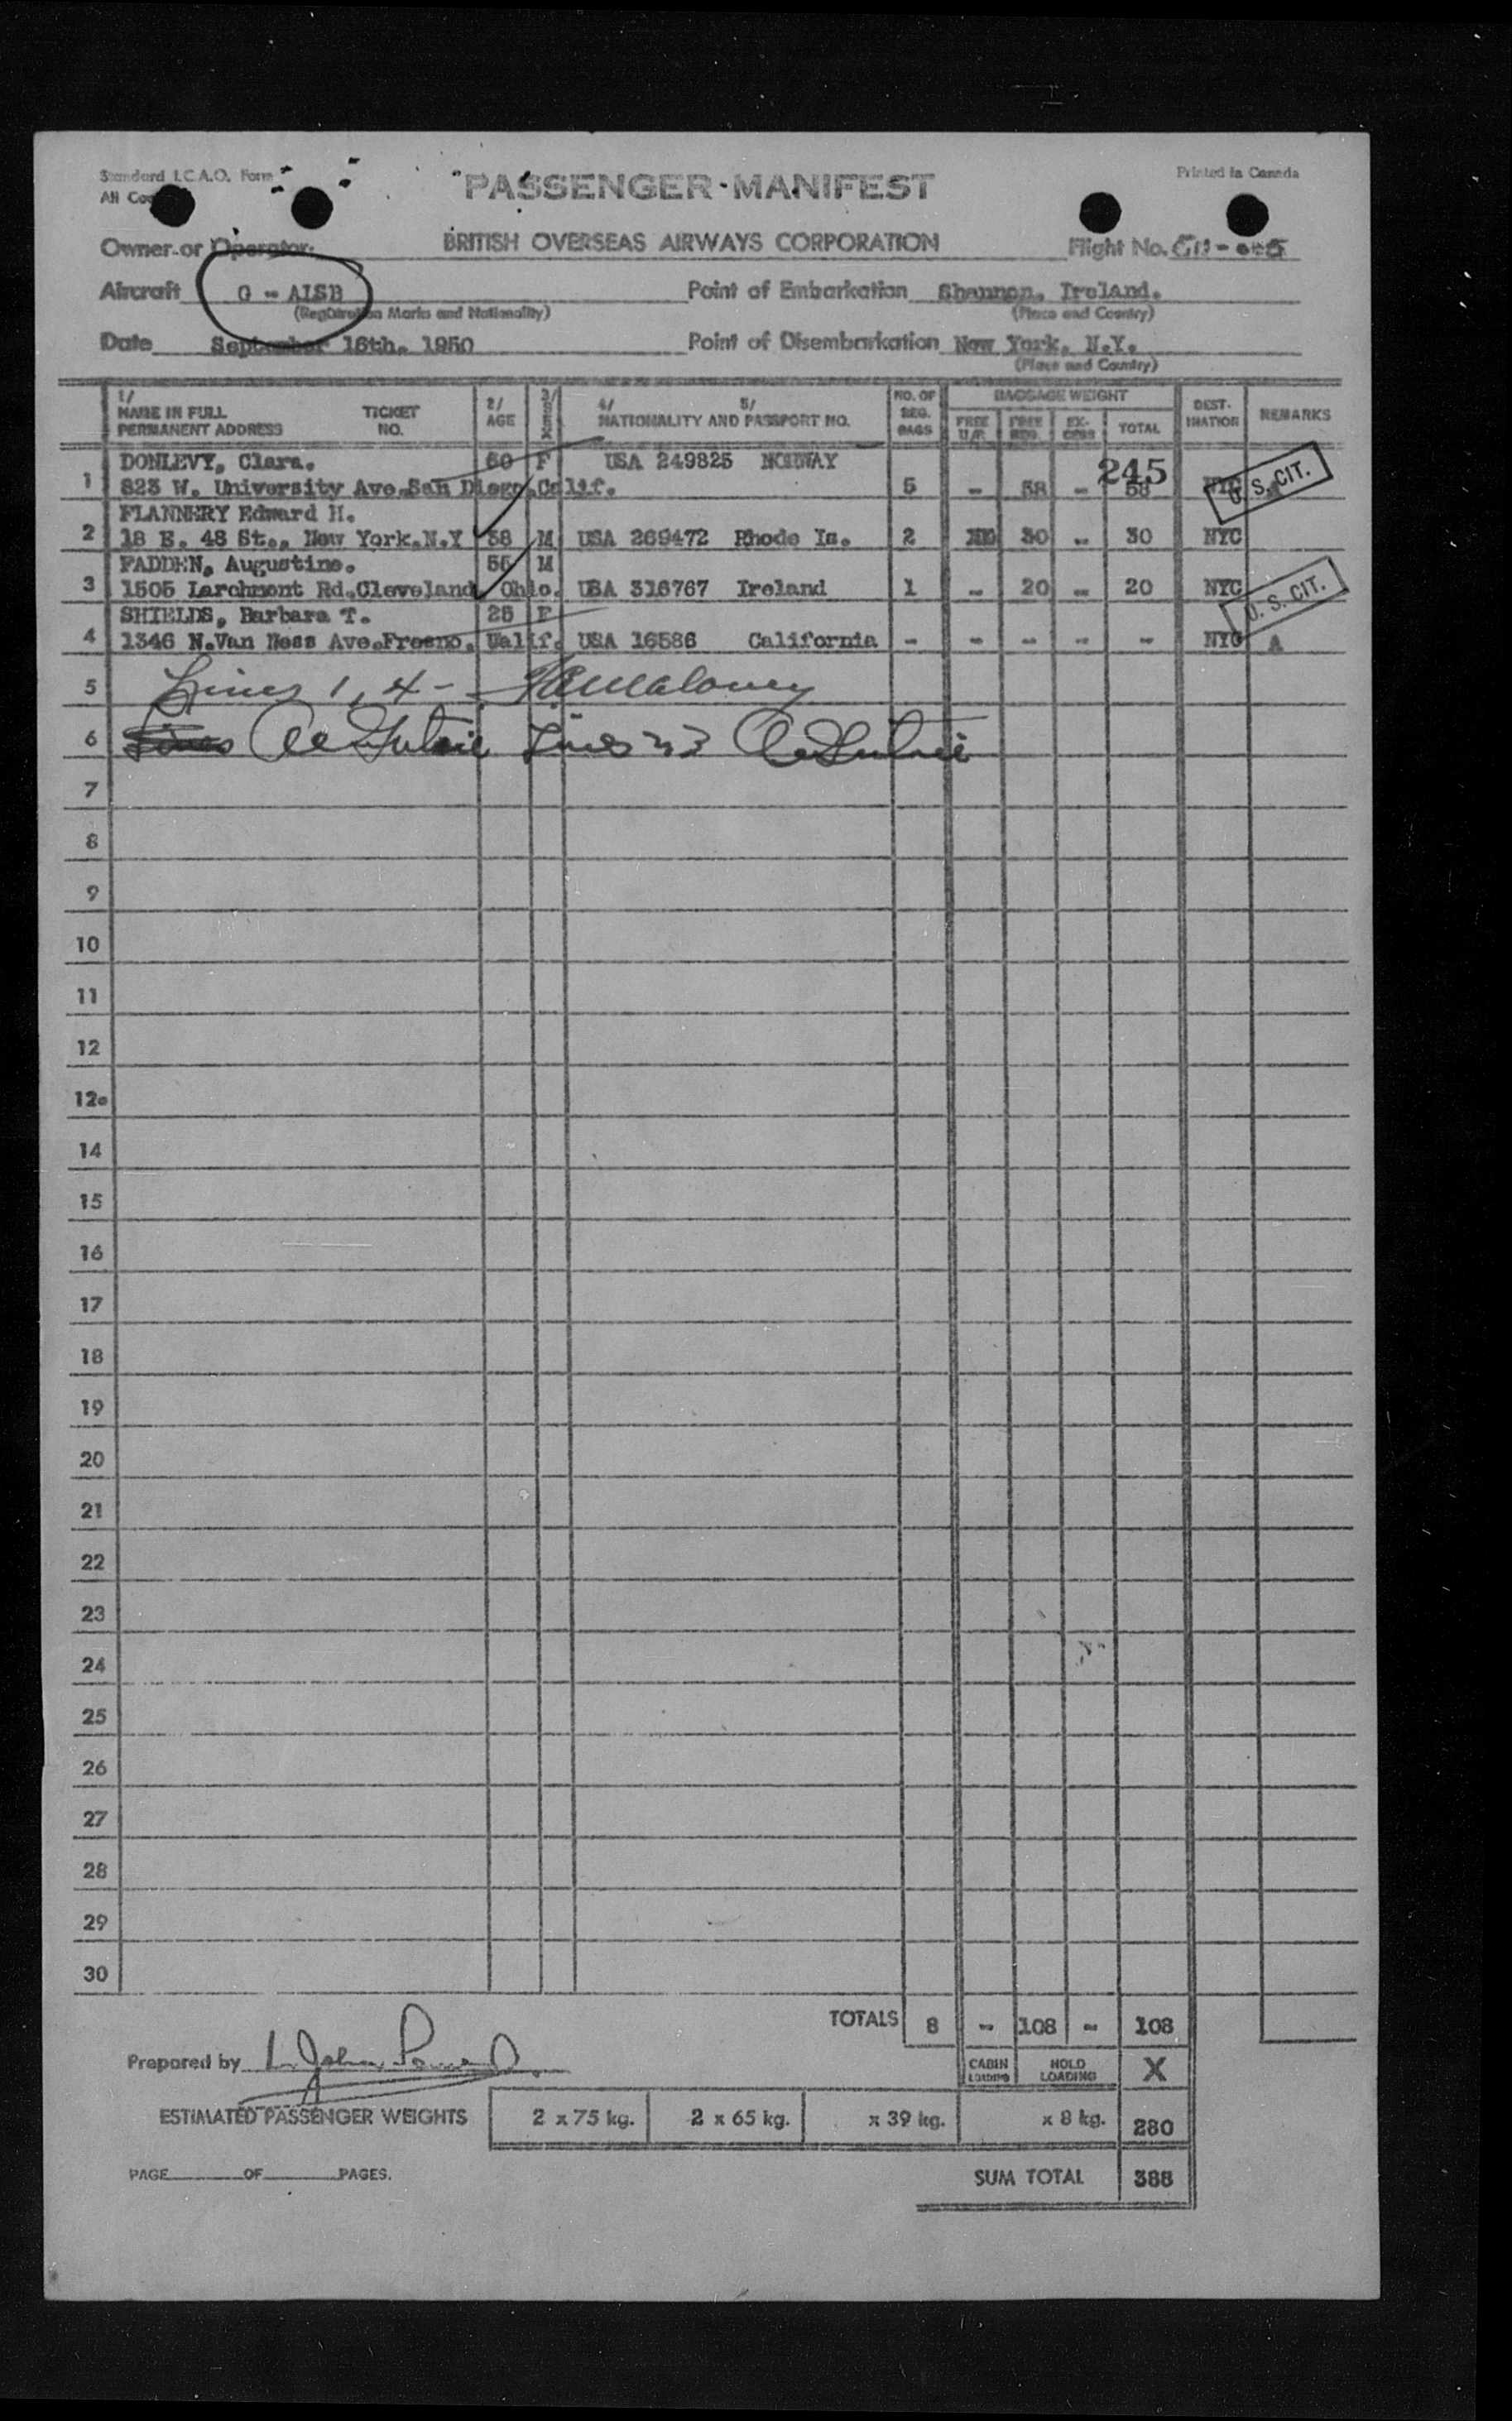 Standard I.C.A.O. Form
PASSENGER-MANIFEST
Printed in Canada
All
Owner or Operator BRITISH OVERSEAS AIRWAYS CORPORATION Flight No.
Aircraft G - ALSB Point of Embarkation Shannon, Ireland.
(Registration Marks and Nationality) (Place and Country)
Date September 16th. 1950 Point of Disembarkation New York, N.Y.
(Place and Country)
1/ NAME IN FULL PERMANENT ADDRESS TICKET NO. 2/ AGE 3/ SEX 4/ 5/ NATIONALITY AND PASSPORT NO. NO. OF REG. BAGS BAGGAGE WEIGHT FREE U/P. FREE REG. EX-CESS TOTAL DEST-INATION REMARKS
DONLEVY, Clara. F USA 249825 NORWAY 245
1 823 W. University Ave.San Diego.Calif. 5 - 58 - 58 NYC U. S. CIT.
FLANNERY Edward H.
2 18 E. 48 St., New York.N.Y 38 M USA 269472 Rhode Is. 2 30 - 30 NYC
FADDEN, Augustine. 55 M
3 1505 Larchmont Rd.Cleveland Ohio. USA 316767 Ireland 1 - 20 - 20 NYC U. S. CIT.
SHIELDS, Barbara T. 25 F
4 1346 N.Van Ness Ave.Fresno. Calif. USA 16586 California - - - - - NYC A
5 Lines 1, 4 - Maloney
6 Lines Lines
7
8
9
10
11
12
12a
14
15
16
17
18
19
20
21
22
23
24
25
26
27
28
29
30
TOTALS 8 - 108 - 108
Prepared by
CABIN LOADING HOLD LOADING X
ESTIMATED PASSENGER WEIGHTS 2 x 75 kg. 2 x 65 kg. x 39 kg. x 8 kg. 280
PAGE OF PAGES. SUM TOTAL 388